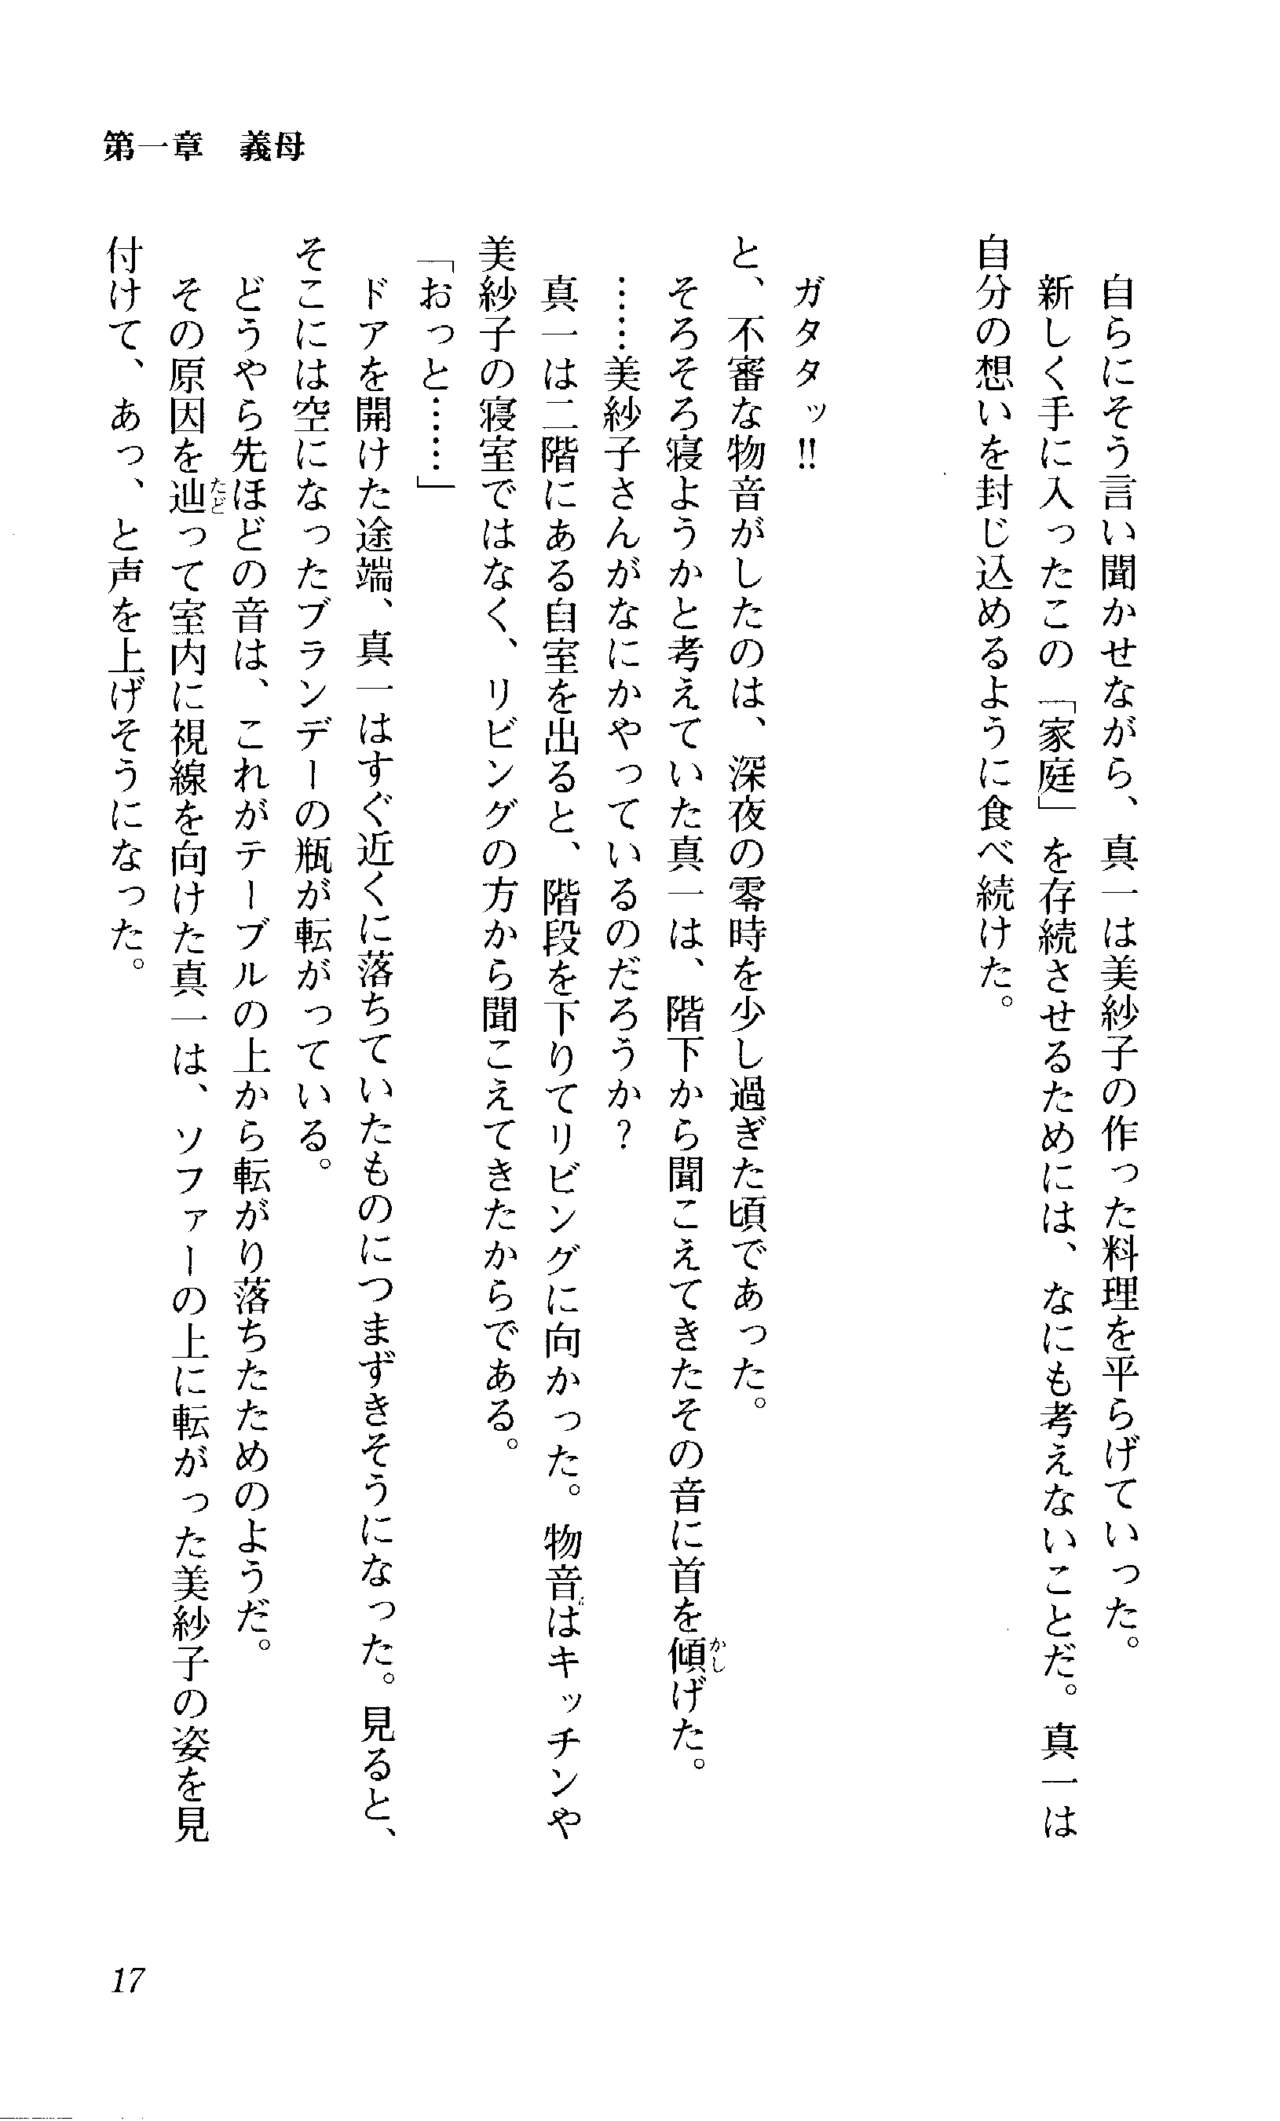 第一章　義母
　自らにそう言い聞かせながら、真一は美紗子の作った料理を平らげていった。
　新しく手に入ったこの「家庭」を存続させるためには、なにも考えないことだ。真一は
自分の想いを封じ込めるように食べ続けた。
　ガタタッ!!
と、不審な物音がしたのは、深夜の零時を少し過ぎた頃であった。
　そろそろ寝ようかと考えていた真一は、階下から聞こえてきたその音に首を傾かしげた。
　……美紗子さんがなにかやっているのだろうか？
　真一は二階にある自室を出ると、階段を下りてリビングに向かった。物音はキッチンや
美紗子の寝室ではなく、リビングの方から聞こえてきたからである。
「おっと……」
　ドアを開けた途端、真一はすぐ近くに落ちていたものにつまずきそうになった。見ると、
そこには空になったブランデーの瓶が転がっている。
　どうやら先ほどの音は、これがテーブルの上から転がり落ちたためのようだ。
　その原因を辿たどって室内に視線を向けた真一は、ソファーの上に転がった美紗子の姿を見
付けて、あっ、と声を上げそうになった。
17